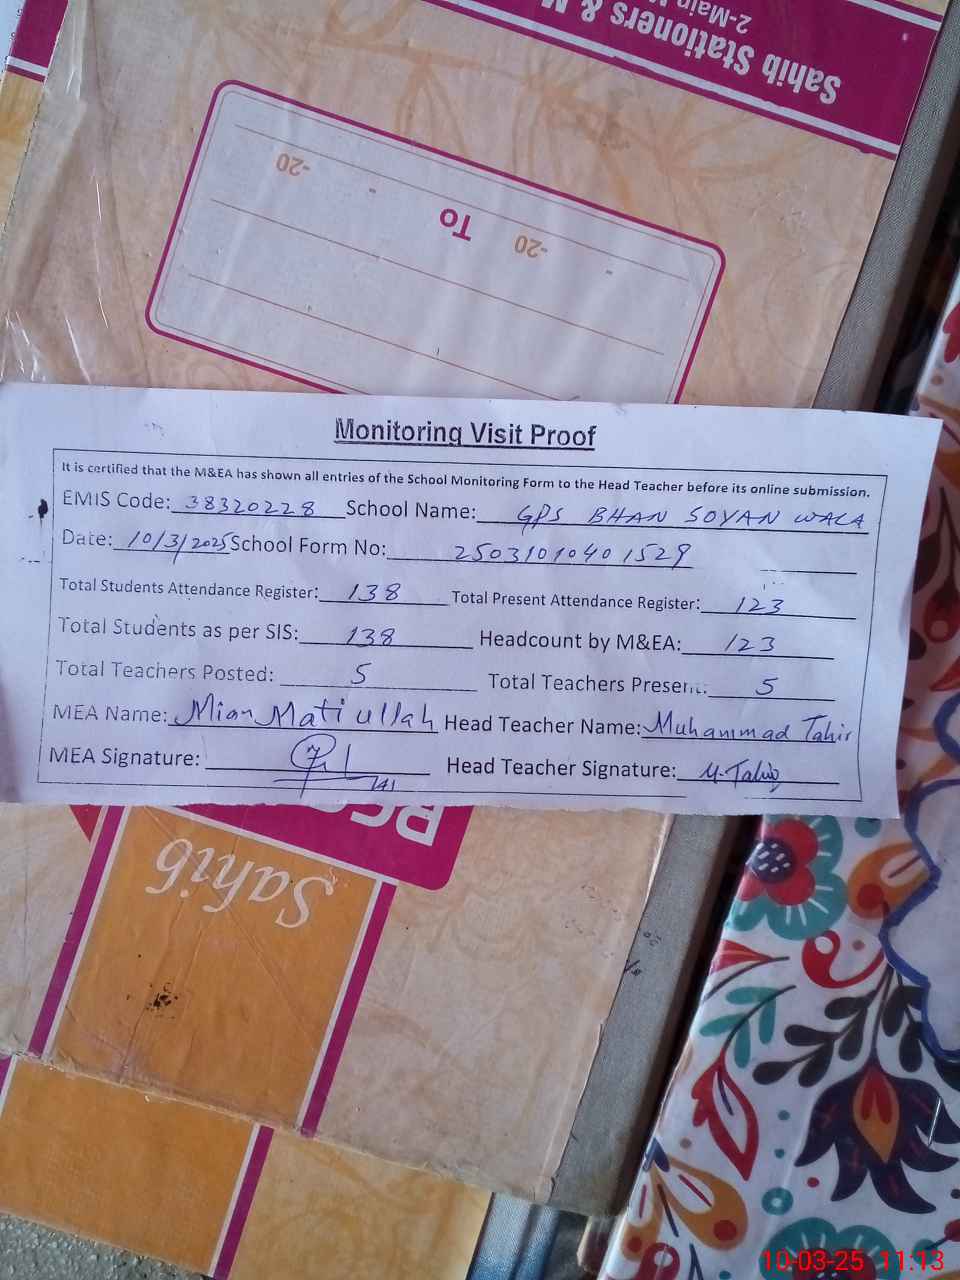 Sahib Stationers & M
2-Main
-20
-20
To
Monitoring Visit Proof
It is certified that the M&EA has shown all entries of the School Monitoring Form to the Head Teacher before its online submission.
EMIS Code: 38320228 School Name: GPS BHAN SOYAN WALA
Date: 10/3/2025 School Form No: 2503101040 1529
Total Students Attendance Register: 138 Total Present Attendance Register: 123
Total Students as per SIS: 138 Headcount by M&EA: 123
Total Teachers Posted: 5 Total Teachers Present: 5
MEA Name: Mian Mati ullah Head Teacher Name: Muhammad Tahir
MEA Signature: 141 Head Teacher Signature: M. Tahir
Sahib
10-03-25 11:13